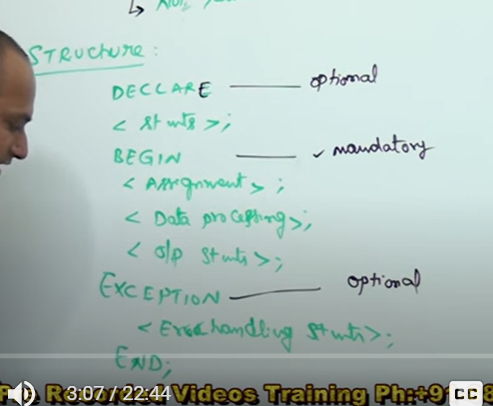 STRUCTURE :
DECLARE —— optional
< stmts >;
BEGIN —— ✓ mandatory
< Assignment > ;
< Data processing >;
< o/p stmts >;
EXCEPTION —— optional
< Error handling stmts >;
END;
3:07 / 22:44
Videos Training Ph:+91
CC